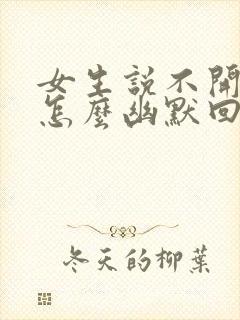 女生説不開
怎麼幽默回
冬天的柳葉